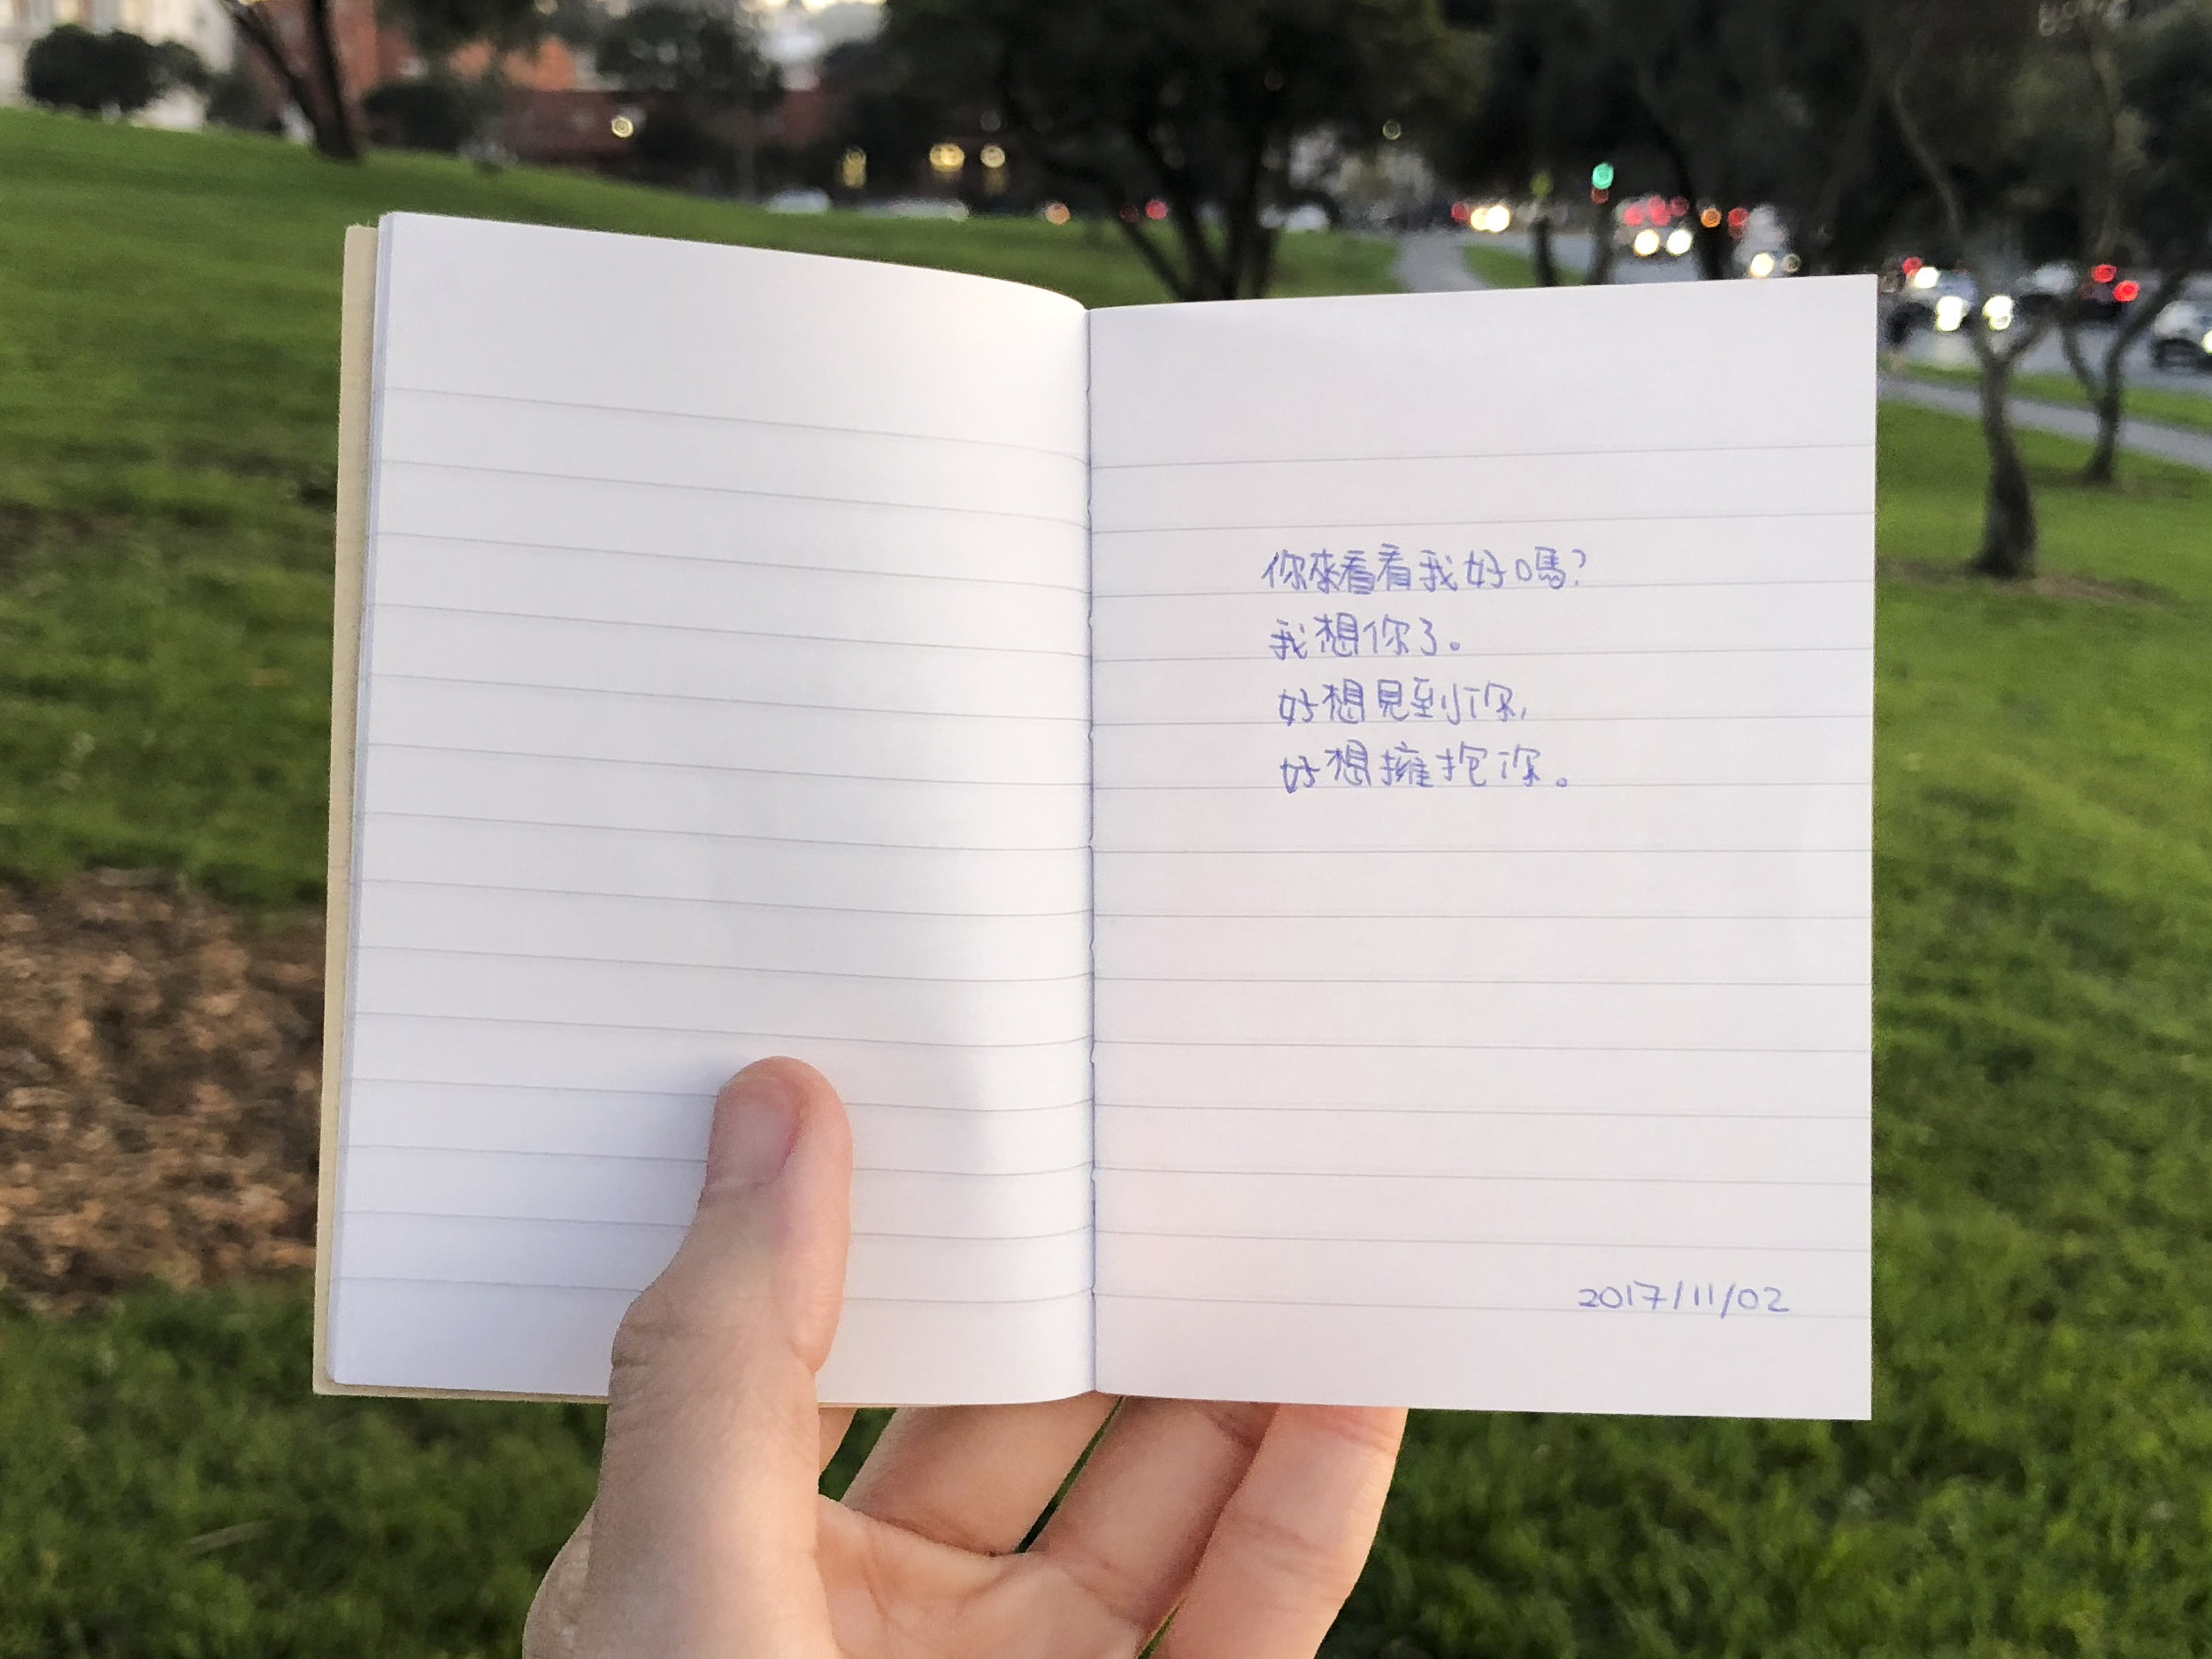 你來看看我好嗎？
我想你了。
好想見到你,
好想擁抱你。
2017/11/02